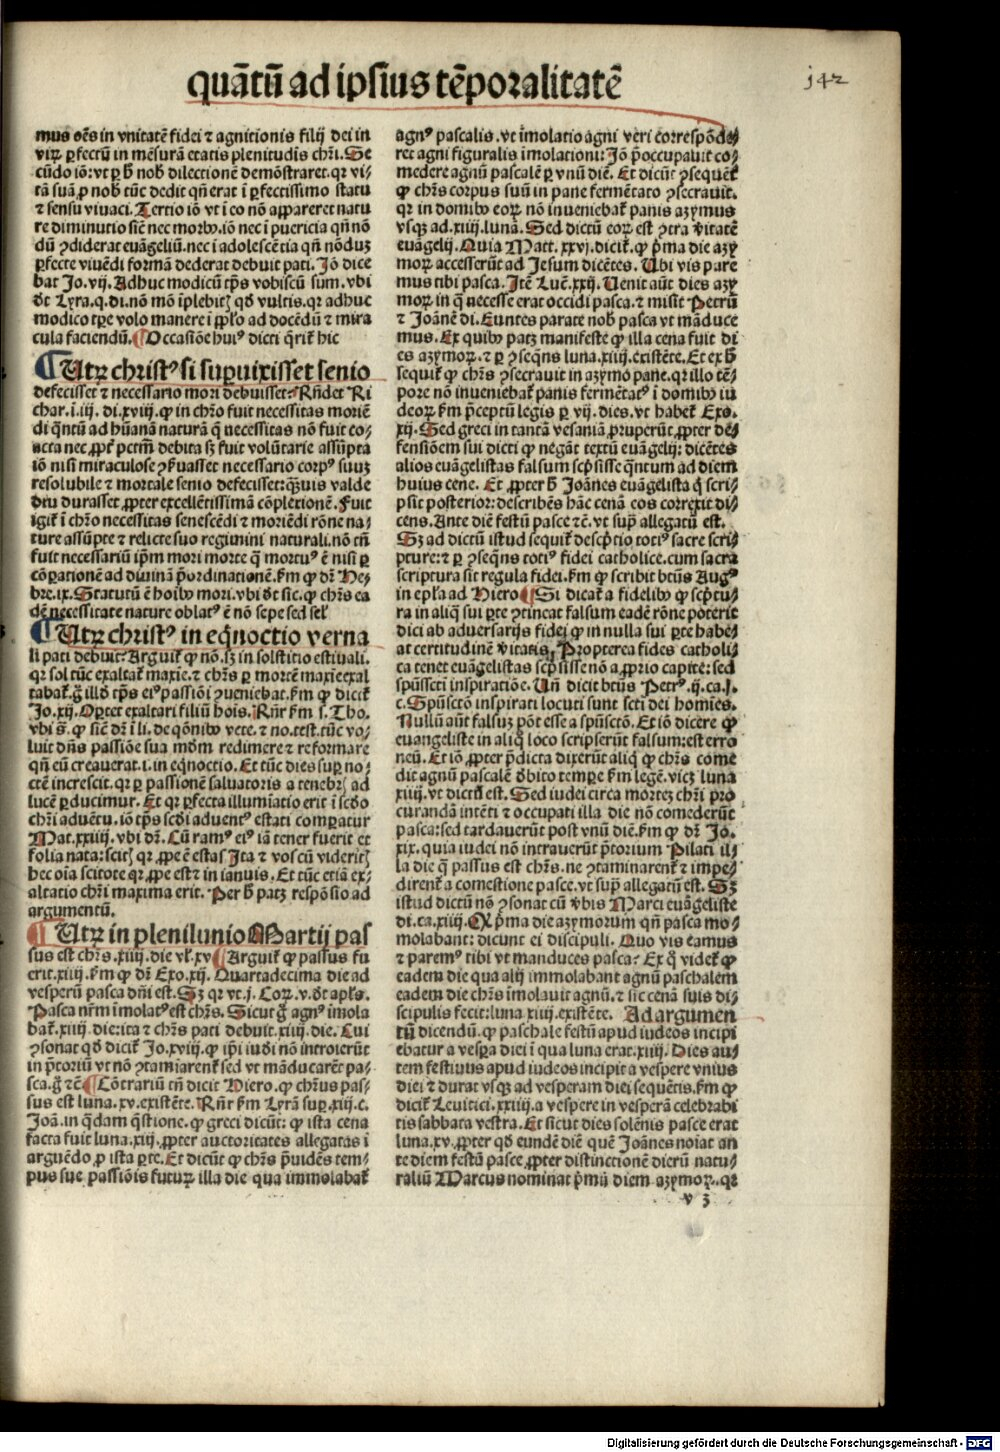 quãtũ ad ipsius tẽporalitatẽ
142
mus oẽs in vnitatẽ fidei ⁊ agnitionis filij dei in
virꝝ ꝑfectũ in mẽsurã etatis plenitudĩs chr̃i. Se
cũdo iõ: vt ꝑ h̃ nob̃ dilectionẽ demõstraret. qꝛ vi-
tã suã ꝓ nob̃ tũc dedit qñ erat ĩ ꝑfectissimo statu
⁊ sensu viuaci. Tertio iõ vt ĩ eo nõ appareret natu
re diminutio siẽ nec morbꝰ. iõ nec ĩ puericia qñ nõ
dũ ꝯdiderat euãgeliũ. nec ĩ adolescẽtia qñ nõduꝫ
ꝑfecte viuẽdi formã dederat debuit pati. Iõ dice
bat Jo. vij. Adhuc modicũ tp̃s vobiscũ sum. vbi
d̃t Lyra. q. di. nõ mõ ĩplebit̃ qd̃ vultis. qꝛ adhuc
modico tp̃e volo manere ĩ pp̃lo ad docẽdũ ⁊ mira
cula faciendũ. ¶ Occasiõe huiꝰ dicti q̃rit̃ hic
¶ Utꝝ christꝰ si suꝑuixisset senio
defecisset ⁊ necessario mori debuisset: Rñdet Ri
char. ĩ. iij. di. xviij. ꝙ in chr̃o fuit necessitas moriẽ
di q̃ntũ ad hũanã naturã q̃ necessitas nõ fuit co/
acta nec ꝓpt̃ pctm̃ debita sꝫ fuit volũtarie assũpta
iõ nisi miraculose ꝯẽuasset necessario corpꝰ suuꝫ
resolubile ⁊ mortale senio defecisset: q̃uis valde
diu durasset. ꝓpter excellẽtissimã cõplexionẽ. Fuit
igit̃ ĩ chr̃o necessitas senescẽdi ⁊ moriẽdi rõne na/
ture assũpte ⁊ relicte suo regimini naturali. nõ tñ
fuit necessariũ ip̃m mori morte q̃ mortuꝰ ẽ nisi ꝑ
cõꝑationẽ ad diuinã p̃ordinationẽ. ẽm ꝙ dr̃ He/
bre. ix. Statutũ ẽ hoĩbꝰ mori. vbi d̃t sic. ꝙ chr̃s ea
dẽ necessitate nature oblatꝰ ẽ nõ sepe sed sel̃
¶ Utꝝ christꝰ in eq̃noctio verna
li pati debuit: Arguit̃ ꝙ nõ. sꝫ in solstitio estiuali.
qꝛ sol tũc exaltat̃ maxie. ⁊ chr̃s ꝑ mortẽ maxie exal
tabat̃. g̃ illd̃ tp̃s eiꝰ passiõi ꝯueniebat. ẽm ꝙ dicit̃
Jo. xij. Oꝑtet exaltari filiũ hoĩs. Rñr ẽm s. Tho.
vbi s̃. ꝙ siẽ dr̃ ĩ li. de q̃onibꝰ vete. ⁊ no. test. tũc vo/
luit dñs passiõe sua mũdm̃ redimere ⁊ reformare
qñ eũ creauerat. i. in eq̃noctio. Et tũc dies suꝑ no/
ctẽ increscit. qꝛ ꝑ passionẽ saluatoris a tenebr̃ ad
lucẽ ꝑducimur. Et qꝛ ꝑfecta illumĩatio erit ĩ scd̃o
chr̃i aduẽtu. iõ tp̃s scd̃i aduentꝰ estati comꝑatur
Mat. xxiiij. vbi dr̃. Cũ ramꝰ eiꝰ iã tener fuerit et
folia nata: scit̃ qꝛ ꝓpe ẽ estas Ita ⁊ vos cũ viderit̃
hec oĩa scitote qꝛ ꝓpe est ⁊ in ianuis. Et tũc etiã ex/
altatio chr̃i maxima erit. Per h̃ patꝫ respõsio ad
argumentũ.
¶ Utꝝ in plenilunio Martij pas
sus est chr̃s. xiiij. die vl̃. xv ¶ Arguit̃ ꝙ passus fu
erit. xiiij. ẽm ꝙ dr̃ Exo. xij. Quartadecima die ad
vesperũ pasca dñi est. Sꝫ qꝛ vt. j. Corꝝ. v. d̃t apl̃s.
Pasca nr̃m ĩmolatꝰ est chr̃s. Sicut g̃ agnꝰ ĩmola
bat̃. xiiij. die: ita ⁊ chr̃s pati debuit. xiiij. die. Cui
ꝯsonat qd̃ dicit̃ Jo. xviij. ꝙ ip̃i iud̃i nõ introierũt
in p̃toriũ vt nõ ꝯtamĩarent̃ sed vt mãducarẽt pa/
sca. g̃ ⁊c̃. ¶ Cõtrariũ tñ dicit Hiero. ꝙ chr̃us pas/
sus est luna. xv. existẽte. Rñr ẽm Lyrã suꝑ. xiij. c.
Joã. in q̃dam q̃stione. ꝙ greci dicũt: ꝙ ista cena
facta fuit luna. xiij. ꝓpter auctoritates allegatas ĩ
arguẽdo ꝓ ista ꝑte. Et dicũt ꝙ chr̃s p̃uidẽs tem/
pus sue passiõis futurꝝ illa die qua immolabat̃
agnꝰ pascalis. vt ĩmolatio agni veri correspõde/
ret agni figuralis ĩmolationi: Iõ p̃occupauit co/
medere agnũ pascalẽ ꝑ vnũ diẽ. Et dicũt ꝯsequẽt̃
ꝙ chr̃s corpus suũ in pane fermẽtato ꝯsecrauit.
qꝛ in domibꝰ eorꝝ nõ inueniebat̃ panis azymus
vsqꝫ ad. xiiij. lunã. Sed dictũ eorꝝ est ꝯtra ṽitatẽ
euãgelij. Quia Matt. xxvj. dicit̃. ꝙ p̃ma die azy
morꝝ accesserũt ad Jesum dicẽtes. Ubi vis pare
mus tibi pasca. Itẽ Luẽ. xxij. Uenit aũt dies azy
morꝝ in q̃ necesse erat occidi pasca. ⁊ misit Petrũ
⁊ Joãnẽ di. Euntes parate nob̃ pasca vt mãduce
mus. Ex quibꝰ patꝫ manifeste ꝙ illa cena fuit di
es azymorꝝ. ⁊ ꝑ ꝯseq̃ns luna. xiiij. existẽte. Et ex h̃
sequit̃ ꝙ chr̃s ꝯsecrauit in azymo pane. qꝛ illo tẽ/
pore nõ inueniebat̃ panis fermẽtatꝰ ĩ domibꝰ iu
deorꝝ ẽm p̃ceptũ legis ꝑ vij. dies. vt habet̃ Exo.
xij. Sed greci in tantã vesaniã ꝓruperũt. ꝓpter de/
fensiõem sui dicti ꝙ negãt textũ euãgelij: dicẽtes
alios euãgelistas falsum scp̃sisse q̃ntum ad diem
huius cene. Et ꝓpter h̃ Joãnes euãgelista q̃ scri/
psit posterior: describẽs hãc cenã eos correxit di/
cens. Ante diẽ festũ pasce ⁊c̃. vt sup̃ allegatũ est.
Sꝫ ad dictũ istud sequit̃ descp̃tio totiꝰ sacre scri/
pture: ⁊ ꝑ ꝯseq̃ns totiꝰ fidei catholice. cum sacra
scriptura sit regula fidei. ẽm ꝙ scribit btũs Augꝰ
in epl̃a ad Hiero ¶ Si dicat̃ a fidelibꝰ ꝙ scp̃tu/
ra in aliq̃ sui ꝑte ꝯtineat falsum eadẽ rõne poterit
dici ab aduersarijs fidei ꝙ in nulla sui ꝑte habe/
at certitudinẽ ṽitatis. Propterea fides catholi/
ca tenet euãgelistas scp̃sisse nõ a ꝓprio capite: sed
spũsscti inspiratiõe. Uñ dicit btũs Petrꝰ. ij. ca. j.
c. Spũsctõ inspirati locuti sunt scti dei homĩes.
Nullũ aũt falsuꝫ põt esse a spũsctõ. Et iõ dicere ꝙ
euangeliste in aliq̃ loco scripserũt falsum: est erro
neũ. Et iõ ꝓpter p̃dicta dixerũt aliq̃ ꝙ chr̃s come
dit agnũ pascalẽ d̃bito tempe ẽm legẽ. vicꝫ luna
xiiij. vt dictũ est. Sed iudei circa morteꝫ chr̃i pro
curandã intẽti ⁊ occupati illa die nõ comederũt
pasca: sed tardauerũt post vnũ diẽ. ẽm ꝙ dr̃ Jo.
xix. quia iudei nõ intrauerũt p̃torium Pilati il/
la die q̃ passus est chr̃s. ne ꝯtaminarent̃ ⁊ impe/
dirent̃ a comestione pasce. vt sup̃ allegatũ est. Sꝫ
istud dictũ nõ ꝯsonat cũ ṽbis Marci euãgeliste
di. ca. xiiij. Q p̃ma die azymorum qñ pasca mo/
molabant: dicunt ei discipuli. Quo vis eamus
⁊ paremꝰ tibi vt manduces pasca: Ex q̃ videt̃ ꝙ
eadem die qua alij immolabant agnũ paschalem
eadem die chr̃s ĩmolauit agnũ. ⁊ sic cenã suis di/
scipulis fecit: luna. xiiij. existẽte. Ad argumen
tũ dicendũ. ꝙ paschale festũ apud iudeos incipi
ebatur a vesꝑa diei ĩ qua luna erat. xiiij. Dies au/
tem festiuus apud iudeos incipit a vespere vnius
diei ⁊ durat vsqꝫ ad vesperam diei sequẽtis. ẽm ꝙ
dicit̃ Leuitici. xxiiij. a vespere in vesperã celebrabi
tis sabbata vestra. Et sicut dies solẽnis pasce erat
luna. xv. ꝓpter qd̃ eundẽ diẽ quẽ Joãnes noĩat an
te diem festũ pasce ꝓpter distinctionẽ dierũ natu/
raliũ Marcus nominat p̃mũ diem azymorꝝ. qꝛ
v 3
Digitalisierung gefördert durch die Deutsche Forschungsgemeinschaft - DFG